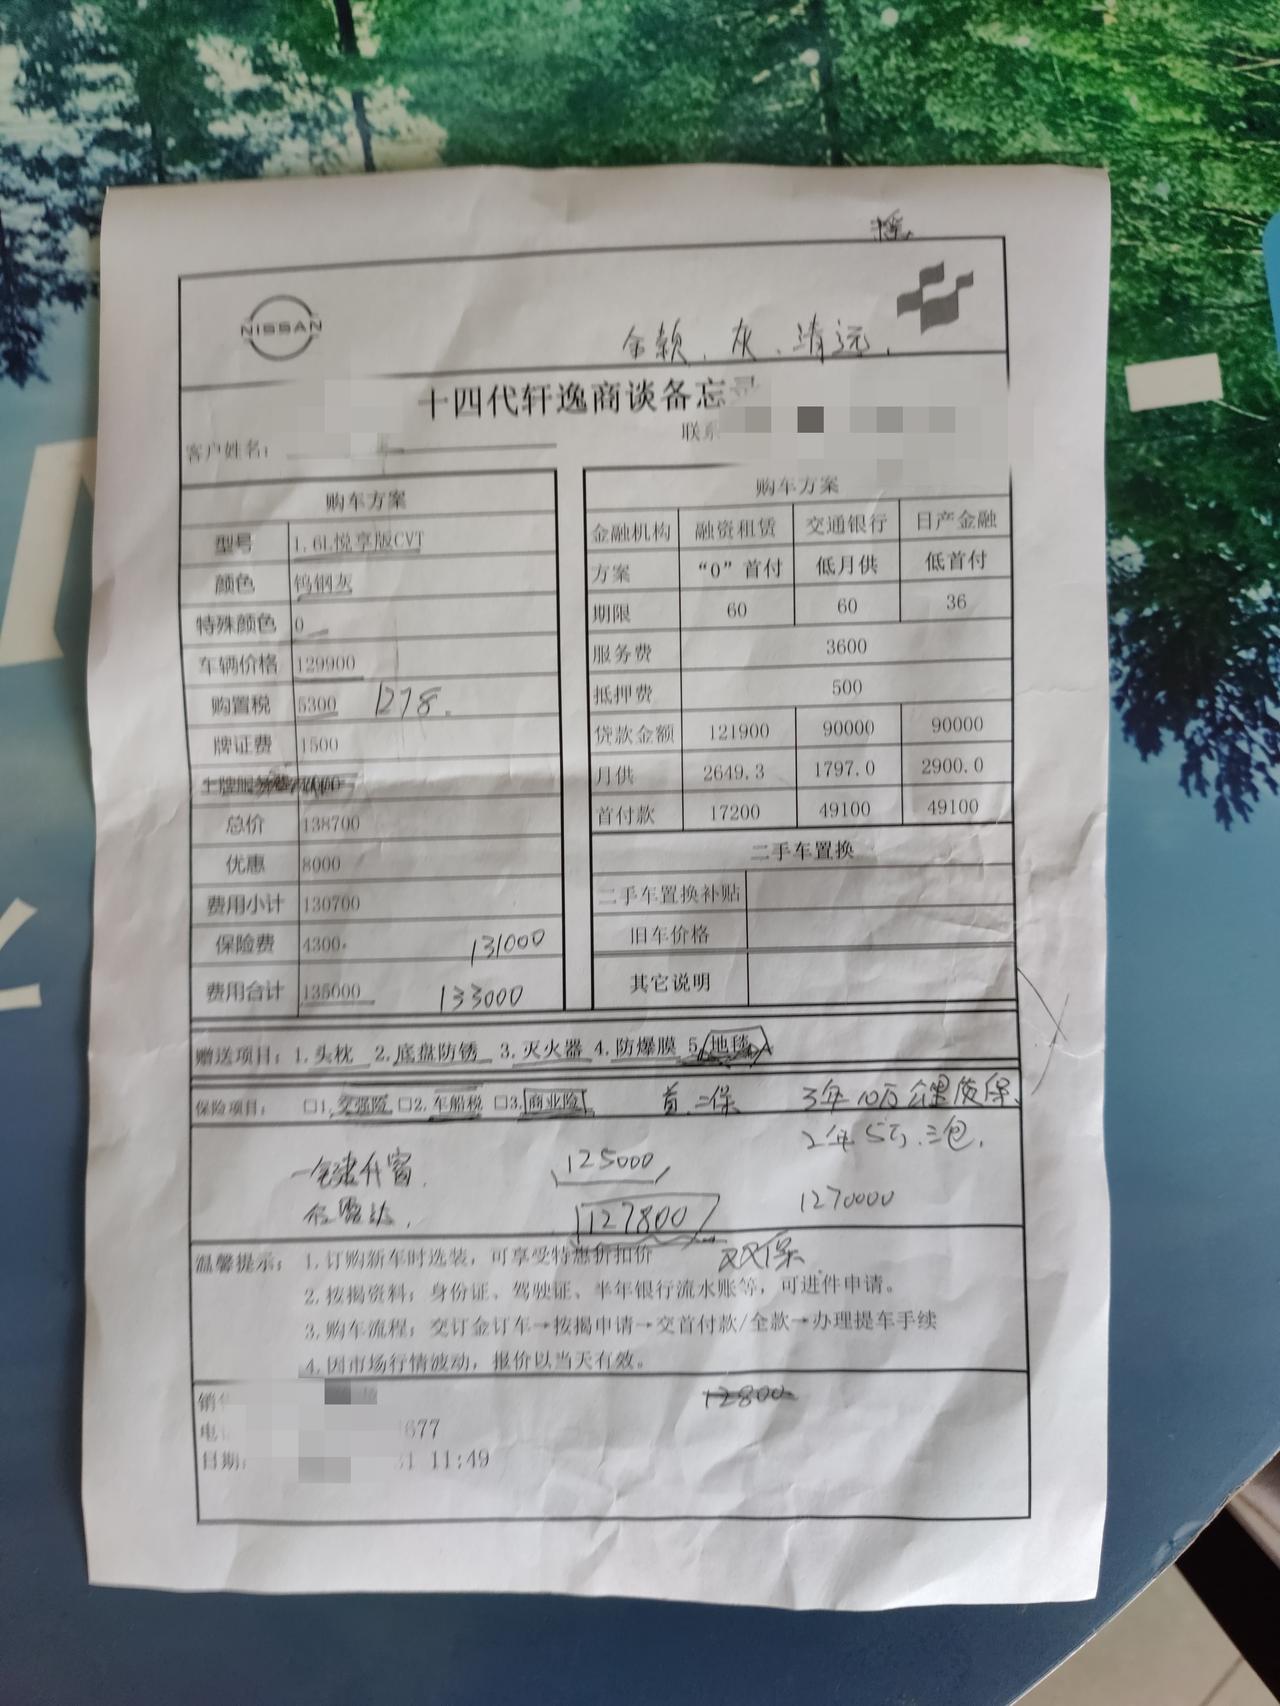 NISSAN
全款、灰、清远,
十四代轩逸商谈备忘
客户姓名:
联系
购车方案
型号 1.6L悦享版CVT
颜色 钨钢灰
特殊颜色 0
车辆价格 129900
购置税 5300 1278.
牌证费 1500
上牌服务费
总价 138700
优惠 8000
费用小计 130700
保险费 4300 131000
费用合计 135000 133000
购车方案
金融机构 融资租赁 交通银行 日产金融
方案 “0”首付 低月供 低首付
期限 60 60 36
服务费 3600
抵押费 500
贷款金额 121900 90000 90000
月供 2649.3 1797.0 2900.0
首付款 17200 49100 49100
二手车置换
二手车置换补贴
旧车价格
其它说明
赠送项目: 1.头枕 2.底盘防锈 3.灭火器 4.防爆膜 5.地毯
保险项目: □1.交强险 □2.车船税 □3.商业险 首二保 3年10万公里质保
2年5万三包.
一键升窗. 125000,
雷达, 127800 1270000
双保
温馨提示: 1.订购新车时选装，可享受特惠折扣价
2.按揭资料: 身份证、驾驶证、半年银行流水账等，可进件申请。
3.购车流程: 交订金订车→按揭申请→交首付款/全款→办理提车手续
4.因市场行情波动，报价以当天有效。
12800
销
电 677
日期: 31 11:49